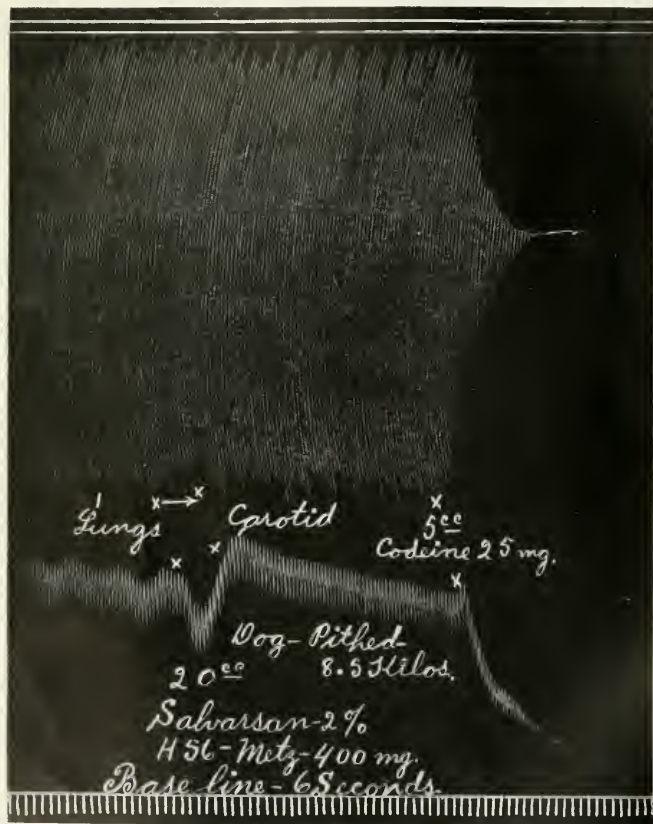 x → x
Lungs
Carotid
x
5cc
Codeine 25 mg.
x
x
x
Dog - Pithed -
8.5 Kilos.
20cc
Salvarsan - 2%
H 56 - Metz - 400 mg.
Base line - 6 Seconds.